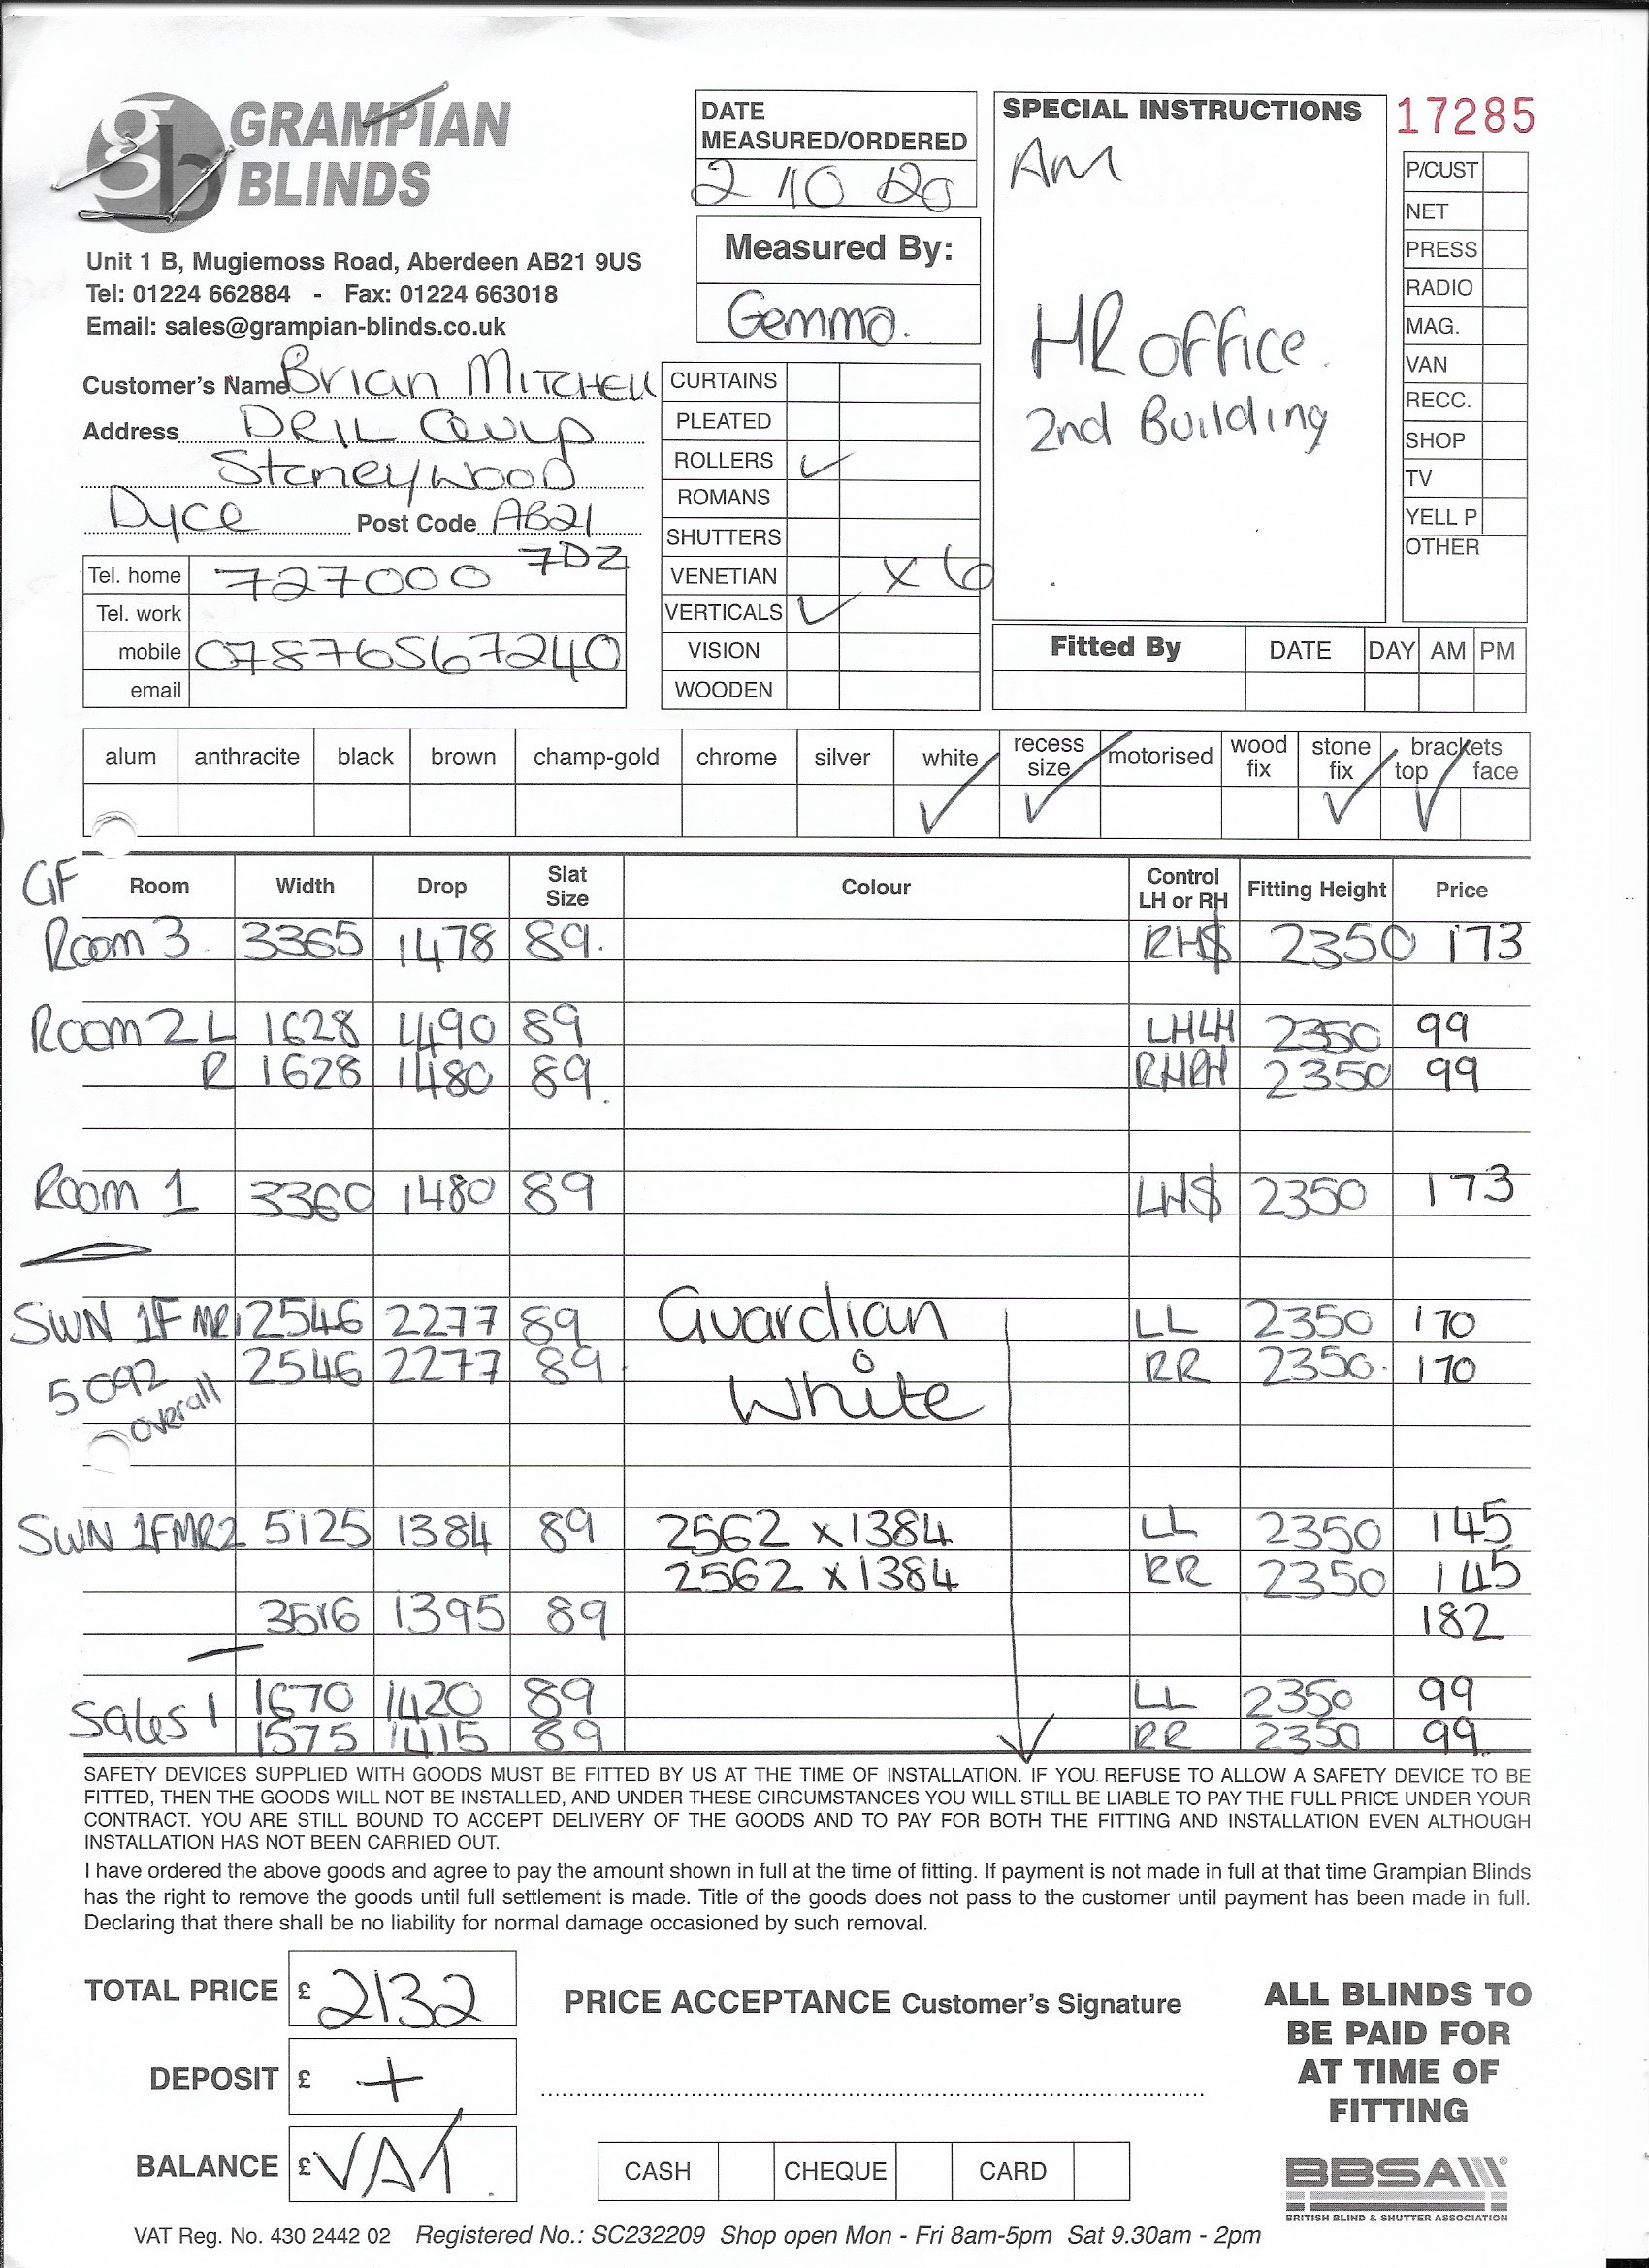 GRAMPIAN
BLINDS
Unit 1 B, Mugiemoss Road, Aberdeen AB21 9US
Tel: 01224 662884 - Fax: 01224 663018
Email: sales@grampian-blinds.co.uk
DATE
MEASURED/ORDERED
2 /10 /20
Measured By:
Gemma.
SPECIAL INSTRUCTIONS
AM
HR office.
2nd Building
17285
P/CUST
NET
PRESS
RADIO
MAG.
VAN
RECC.
SHOP
TV
YELL P
OTHER
Customer's Name Brian MITCHELL
Address DRIL QUIP
Stoneywood
Dyce Post Code AB21
7DZ
Tel. home 727000
Tel. work
mobile 07876567240
email
CURTAINS
PLEATED
ROLLERS ✓
ROMANS
SHUTTERS
VENETIAN x 6
VERTICALS ✓
VISION
WOODEN
Fitted By DATE DAY AM PM
alum anthracite black brown champ-gold chrome silver white recess size motorised wood fix stone fix brackets top face
✓ ✓ ✓ ✓
GF Room Width Drop Slat Size Colour Control LH or RH Fitting Height Price
Room 3 3365 1478 89. RH$ 2350 173
Room 2 L 1628 1490 89 LHLH 2350 99
R 1628 1480 89. RHRH 2350 99
Room 1 3360 1480 89 LH$ 2350 173
SWN 1F MR1 2546 2277 89 Guardian LL 2350 170
5092 overall 2546 2277 89. White RR 2350. 170
SWN 1FMR2 5125 1384 89 2562 x 1384 LL 2350 145
2562 x 1384 RR 2350 145
3516 1395 89 182
Sales 1 1670 1420 89 LL 2350 99
1575 1415 89 RR 2350 99
SAFETY DEVICES SUPPLIED WITH GOODS MUST BE FITTED BY US AT THE TIME OF INSTALLATION. IF YOU REFUSE TO ALLOW A SAFETY DEVICE TO BE
FITTED, THEN THE GOODS WILL NOT BE INSTALLED, AND UNDER THESE CIRCUMSTANCES YOU WILL STILL BE LIABLE TO PAY THE FULL PRICE UNDER YOUR
CONTRACT. YOU ARE STILL BOUND TO ACCEPT DELIVERY OF THE GOODS AND TO PAY FOR BOTH THE FITTING AND INSTALLATION EVEN ALTHOUGH
INSTALLATION HAS NOT BEEN CARRIED OUT.
I have ordered the above goods and agree to pay the amount shown in full at the time of fitting. If payment is not made in full at that time Grampian Blinds
has the right to remove the goods until full settlement is made. Title of the goods does not pass to the customer until payment has been made in full.
Declaring that there shall be no liability for normal damage occasioned by such removal.
TOTAL PRICE £ 2132
DEPOSIT £ +
BALANCE £ VAT.
PRICE ACCEPTANCE Customer's Signature
CASH CHEQUE CARD
ALL BLINDS TO
BE PAID FOR
AT TIME OF
FITTING
BBSA
BRITISH BLIND & SHUTTER ASSOCIATION
VAT Reg. No. 430 2442 02 Registered No.: SC232209 Shop open Mon - Fri 8am-5pm Sat 9.30am - 2pm